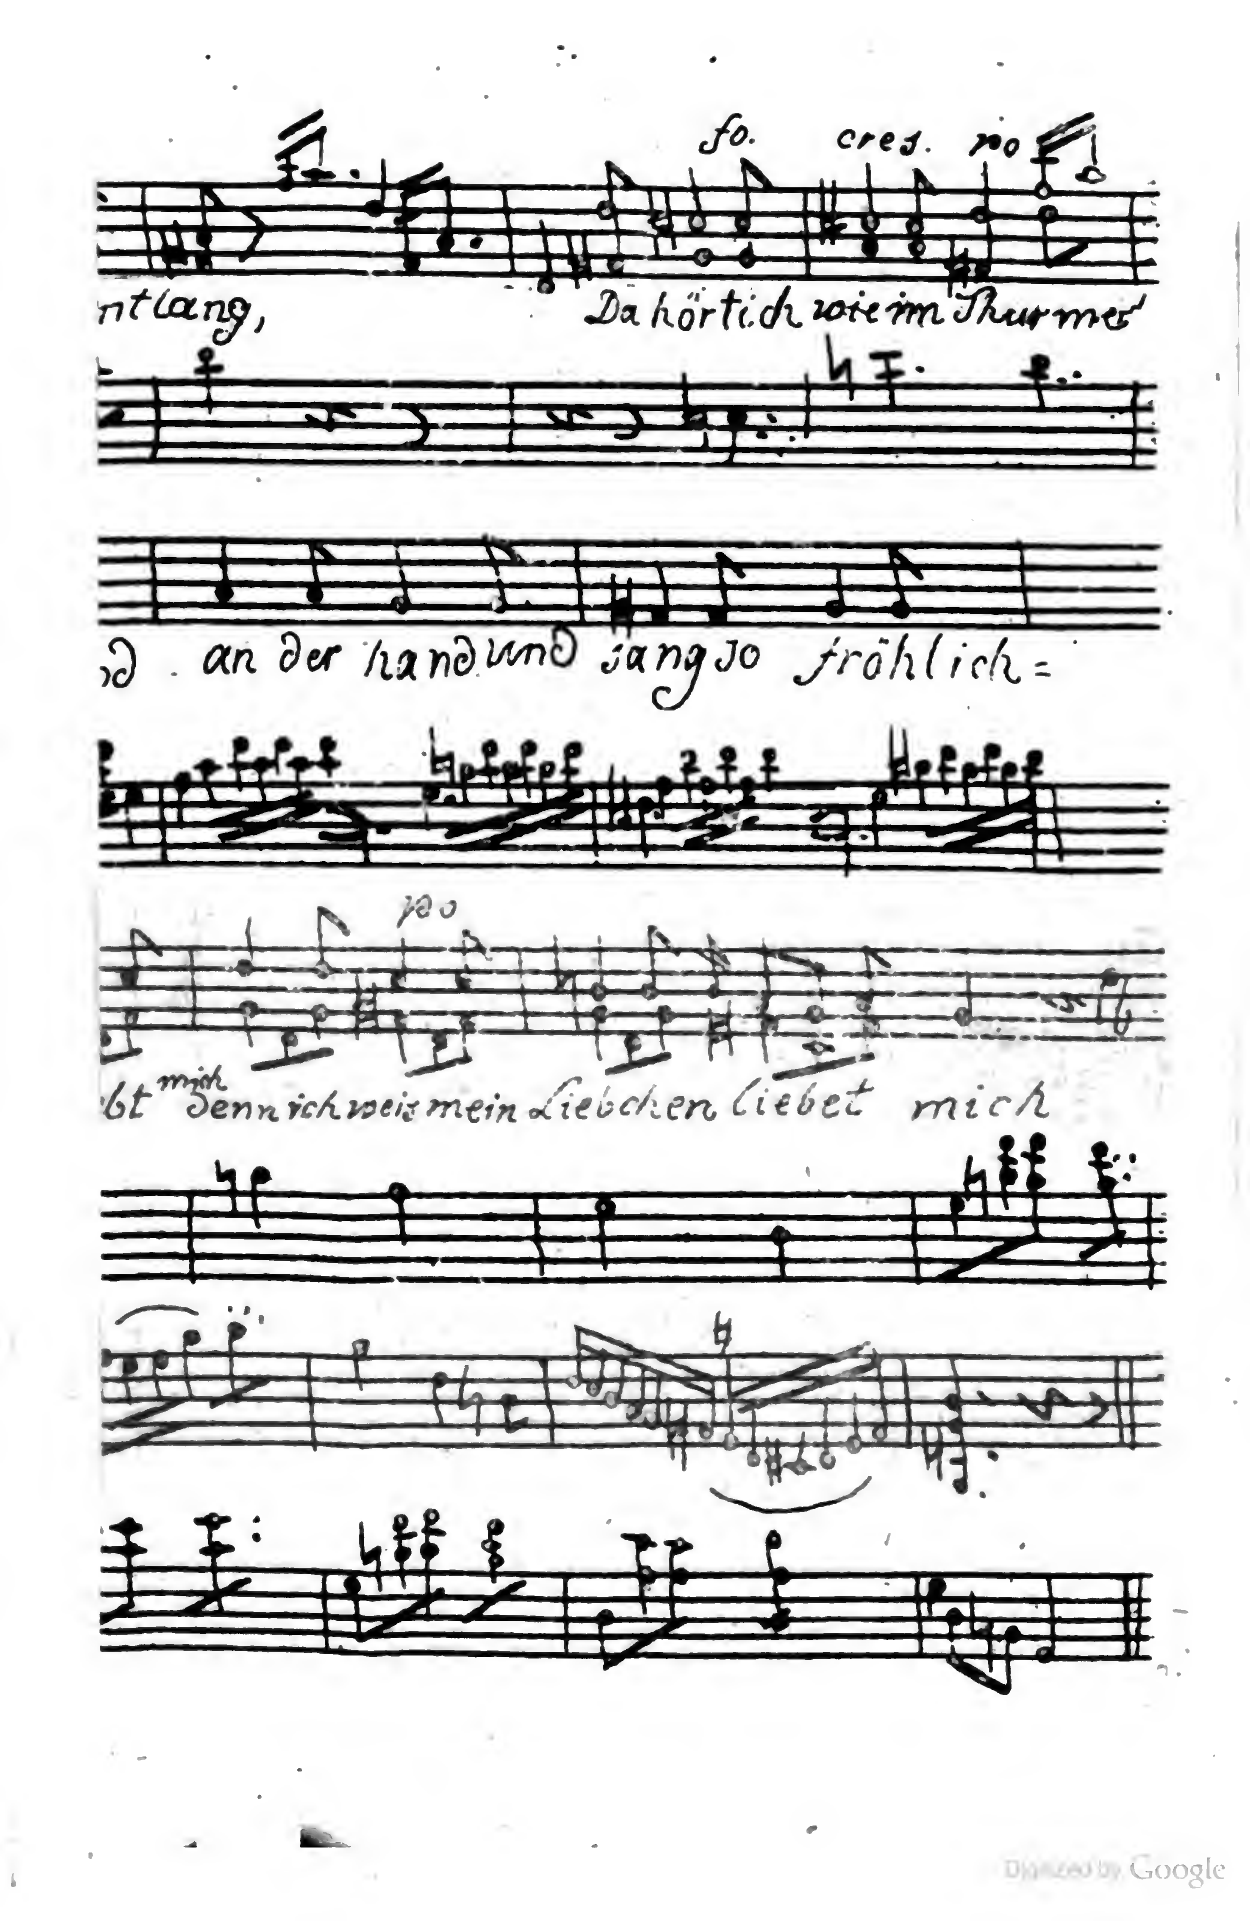 fo. cres. po
ntlang, Da hört ich wie im Thurme
an der hand und sang so fröhlich=
po
mich
bt denn ich weis mein Liebchen liebet mich
Digitized by Google